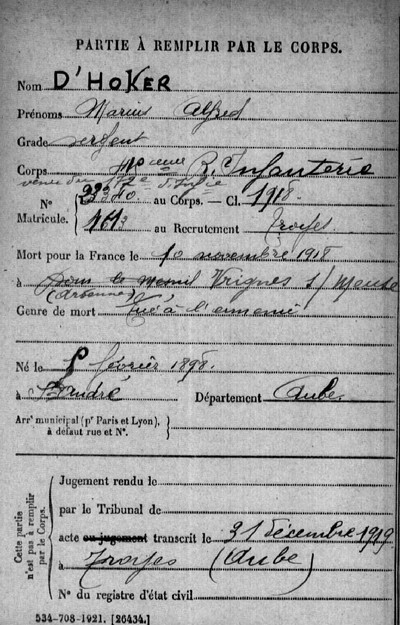 PARTIE À REMPLIR PAR LE CORPS.
Nom D'HOKER
Prénoms Marius Alfred
Grade sergent
Corps R. Infanterie
N° au Corps. — Cl. 1918
Matricule. 1613 au Recrutement Troyes
Mort pour la France le 10 novembre 1918
à Vrignes s/ Meuse
(Ardennes)
Genre de mort Tué à l'ennemi
Né le 8 février 1898
à St André Département Aube
Arrt municipal (pr Paris et Lyon),
à défaut rue et N°.
Cette partie
n'est pas à remplir
par le Corps.
Jugement rendu le
par le Tribunal de
acte ou jugement transcrit le 31 décembre 1919
à Troyes (Aube)
N° du registre d'état civil
534-708-1921. [26434.]